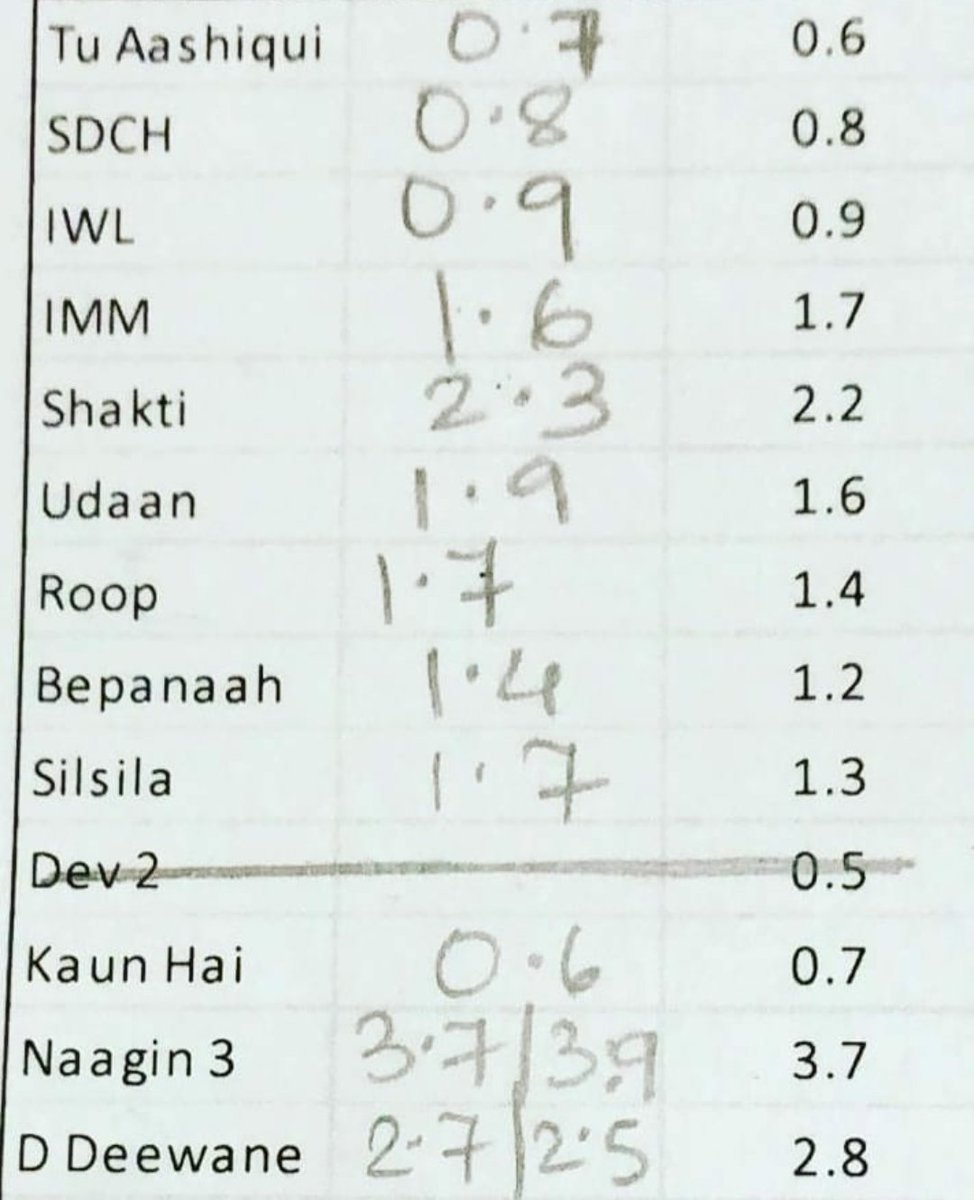 Tu Aashiqui 0.7 0.6
SDCH 0.8 0.8
IWL 0.9 0.9
IMM 1.6 1.7
Shakti 2.3 2.2
Udaan 1.9 1.6
Roop 1.7 1.4
Bepanaah 1.4 1.2
Silsila 1.7 1.3
Dev 2 0.5
Kaun Hai 0.6 0.7
Naagin 3 3.7/3.9 3.7
D Deewane 2.7/2.5 2.8